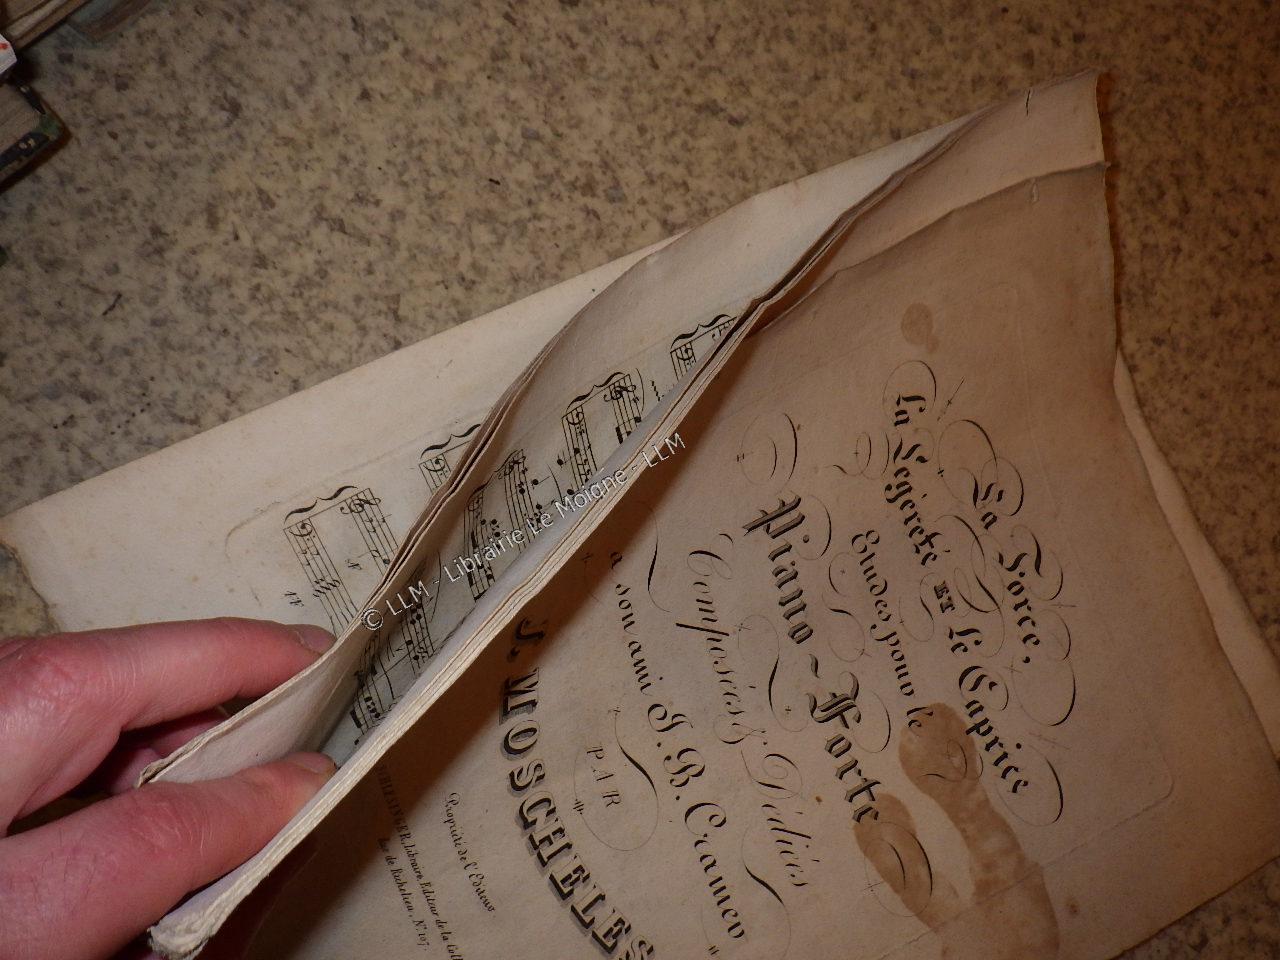 La Force,
La Légéreté ET le Caprice
Etudes pour le
Piano-Forte
Composées & Dédiées
a son ami J. B. Cramer
PAR
J. MOSCHELES
Propriété de l'Editeur
SCHLESINGER, Libraire, Editeur de la
Rue de Richelieu, N° 107.
© LLM - Librairie Le Moigne - LLM